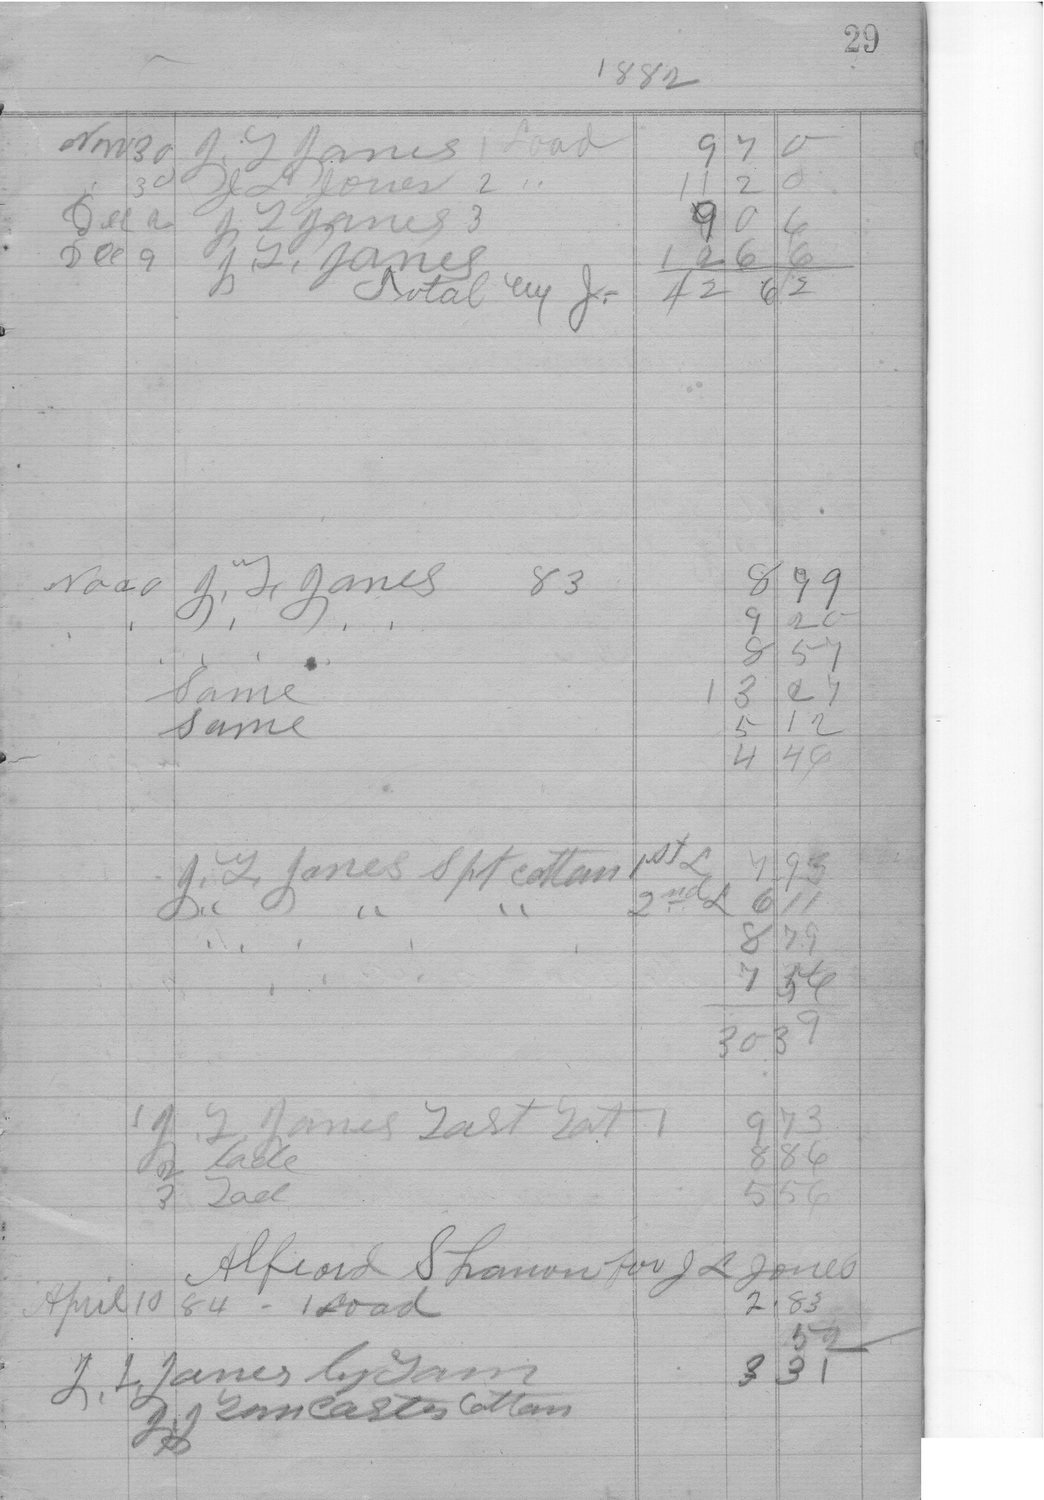 29
1882
Nov 30 J. L Jones 1 Load 9 7 0
" 30 J L Jones 2 " 11 2 0
Dec 2 J L Jones 3 9 0 6
Dec 9 J. L. Jones 12 6 6
Total 42 62
J. L. Jones 83 8 99
9 20
8 57
Same 13 27
Same 5 12
4 46
J. L. Jones Spt cottan 1st L 7 93
" " " 2nd L 6 11
8 79
7 56
30 39
1 J. L Jones Last Lot 1 9 73
2 Lode 8 86
3 Lod 5 56
Alfiord Shanon for J L Jones
April 10 84 - 1 Load 2.83
52
J. L. Jones by 3 31
J. J Lancaster Cottan